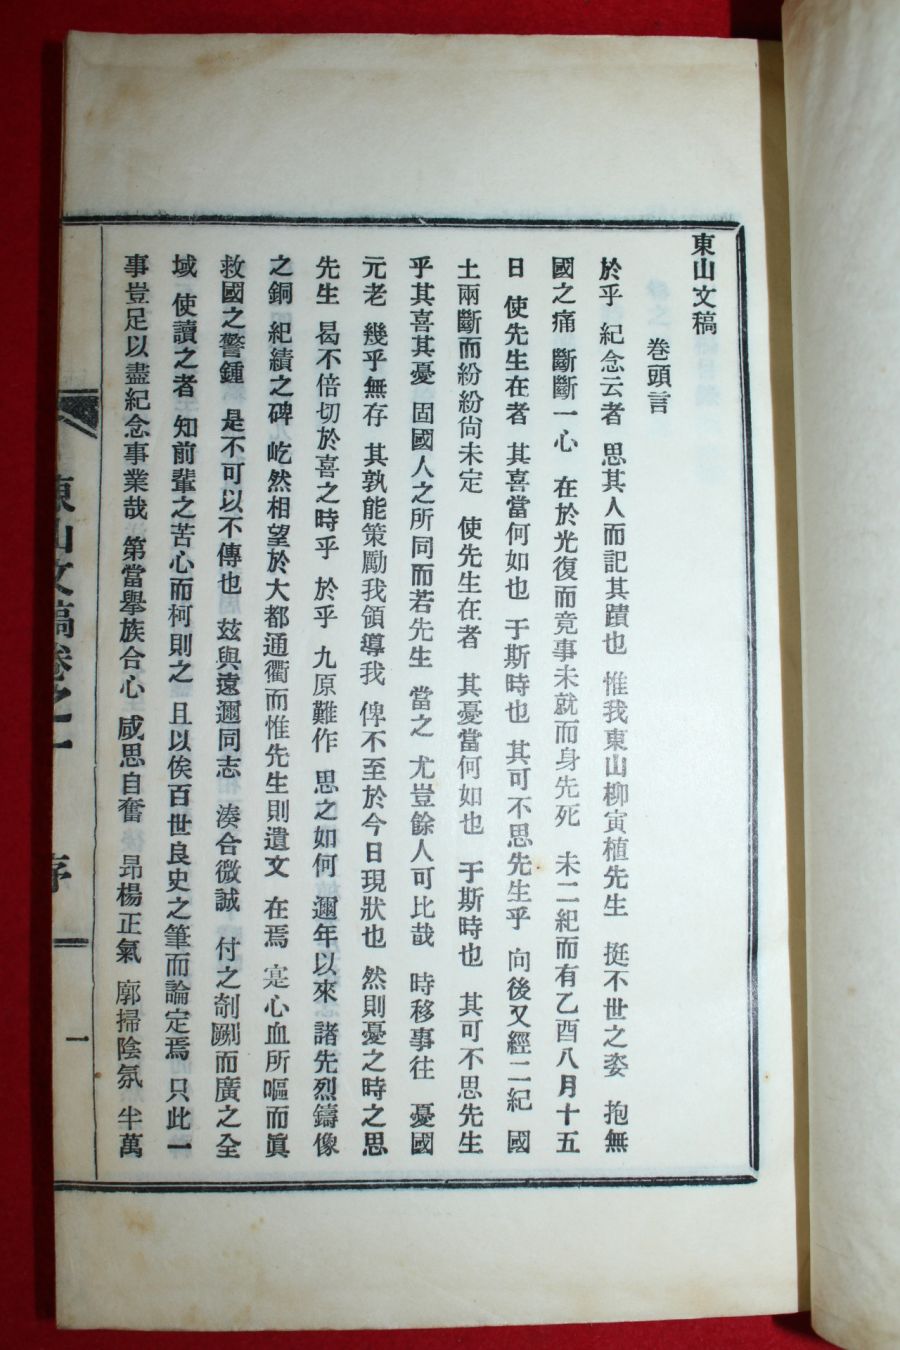 東山文稿
卷頭言
於乎 紀念云者 思其人而記其蹟也 惟我東山柳寅植先生 挺不世之姿 抱無
國之痛 斷斷一心 在於光復而竟事未就而身先死 未二紀而有乙酉八月十五
日 使先生在者 其喜當何如也 于斯時也 其可不思先生乎 向後又經二紀 國
土兩斷而紛紛尙未定 使先生在者 其憂當何如也 于斯時也 其可不思先生
乎其喜其憂 固國人之所同而若先生 當之 尤豈餘人可比哉 時移事往 憂國
元老 幾乎無存 其孰能策勵我領導我 俾不至於今日現狀也 然則憂之時之思
先生 曷不倍切於喜之時乎 於乎 九原難作 思之如何 邇年以來 諸先烈鑄像
之銅 紀績之碑 屹然相望於大都通衢而惟先生則遺文 在焉 寔心血所嘔而眞
救國之警鍾 是不可以不傳也 玆與遠邇同志 湊合微誠 付之剞劂而廣之全
域 使讀之者 知前輩之苦心而柯則之 且以俟百世良史之筆而論定焉 只此一
事豈足以盡紀念事業哉 第當擧族合心 咸思自奮 昻楊正氣 廓掃陰氛 半萬
東山文稿卷之一 序 一